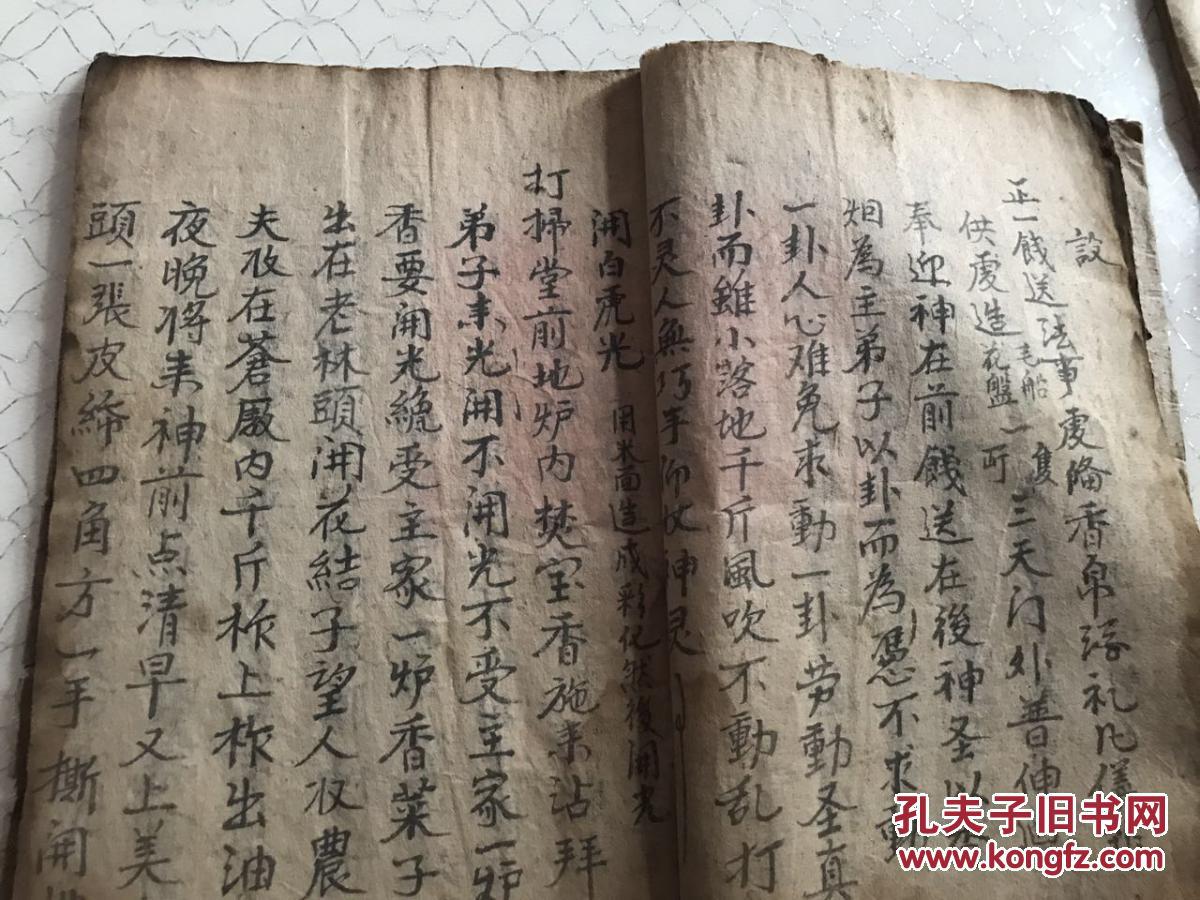 設
正一餞送法事虔偹香帛
供虔造花盤毛船一隻三天门外普伸
奉迎神在前餞送在後神圣以
烟為主弟子以卦而為憑不求
一卦人心难免求動一卦劳動圣真
卦而雖小落地千斤風吹不動乱打
不灵人無巧手仰仗神灵
開白虎光 用米面造成彩化然後開光
打掃堂前地炉内焚宝香施来沾拜
弟子来光開不開光不受主家一炉
香要開光繞受主家一炉香菜子
出在老林頭開花結子望人收農
夫收在蒼厫内千斤柞上柞出油
夜晚将来神前点清早又上美
頭一張皮締四角方一手撕開
孔夫子旧书网
www.kongfz.com